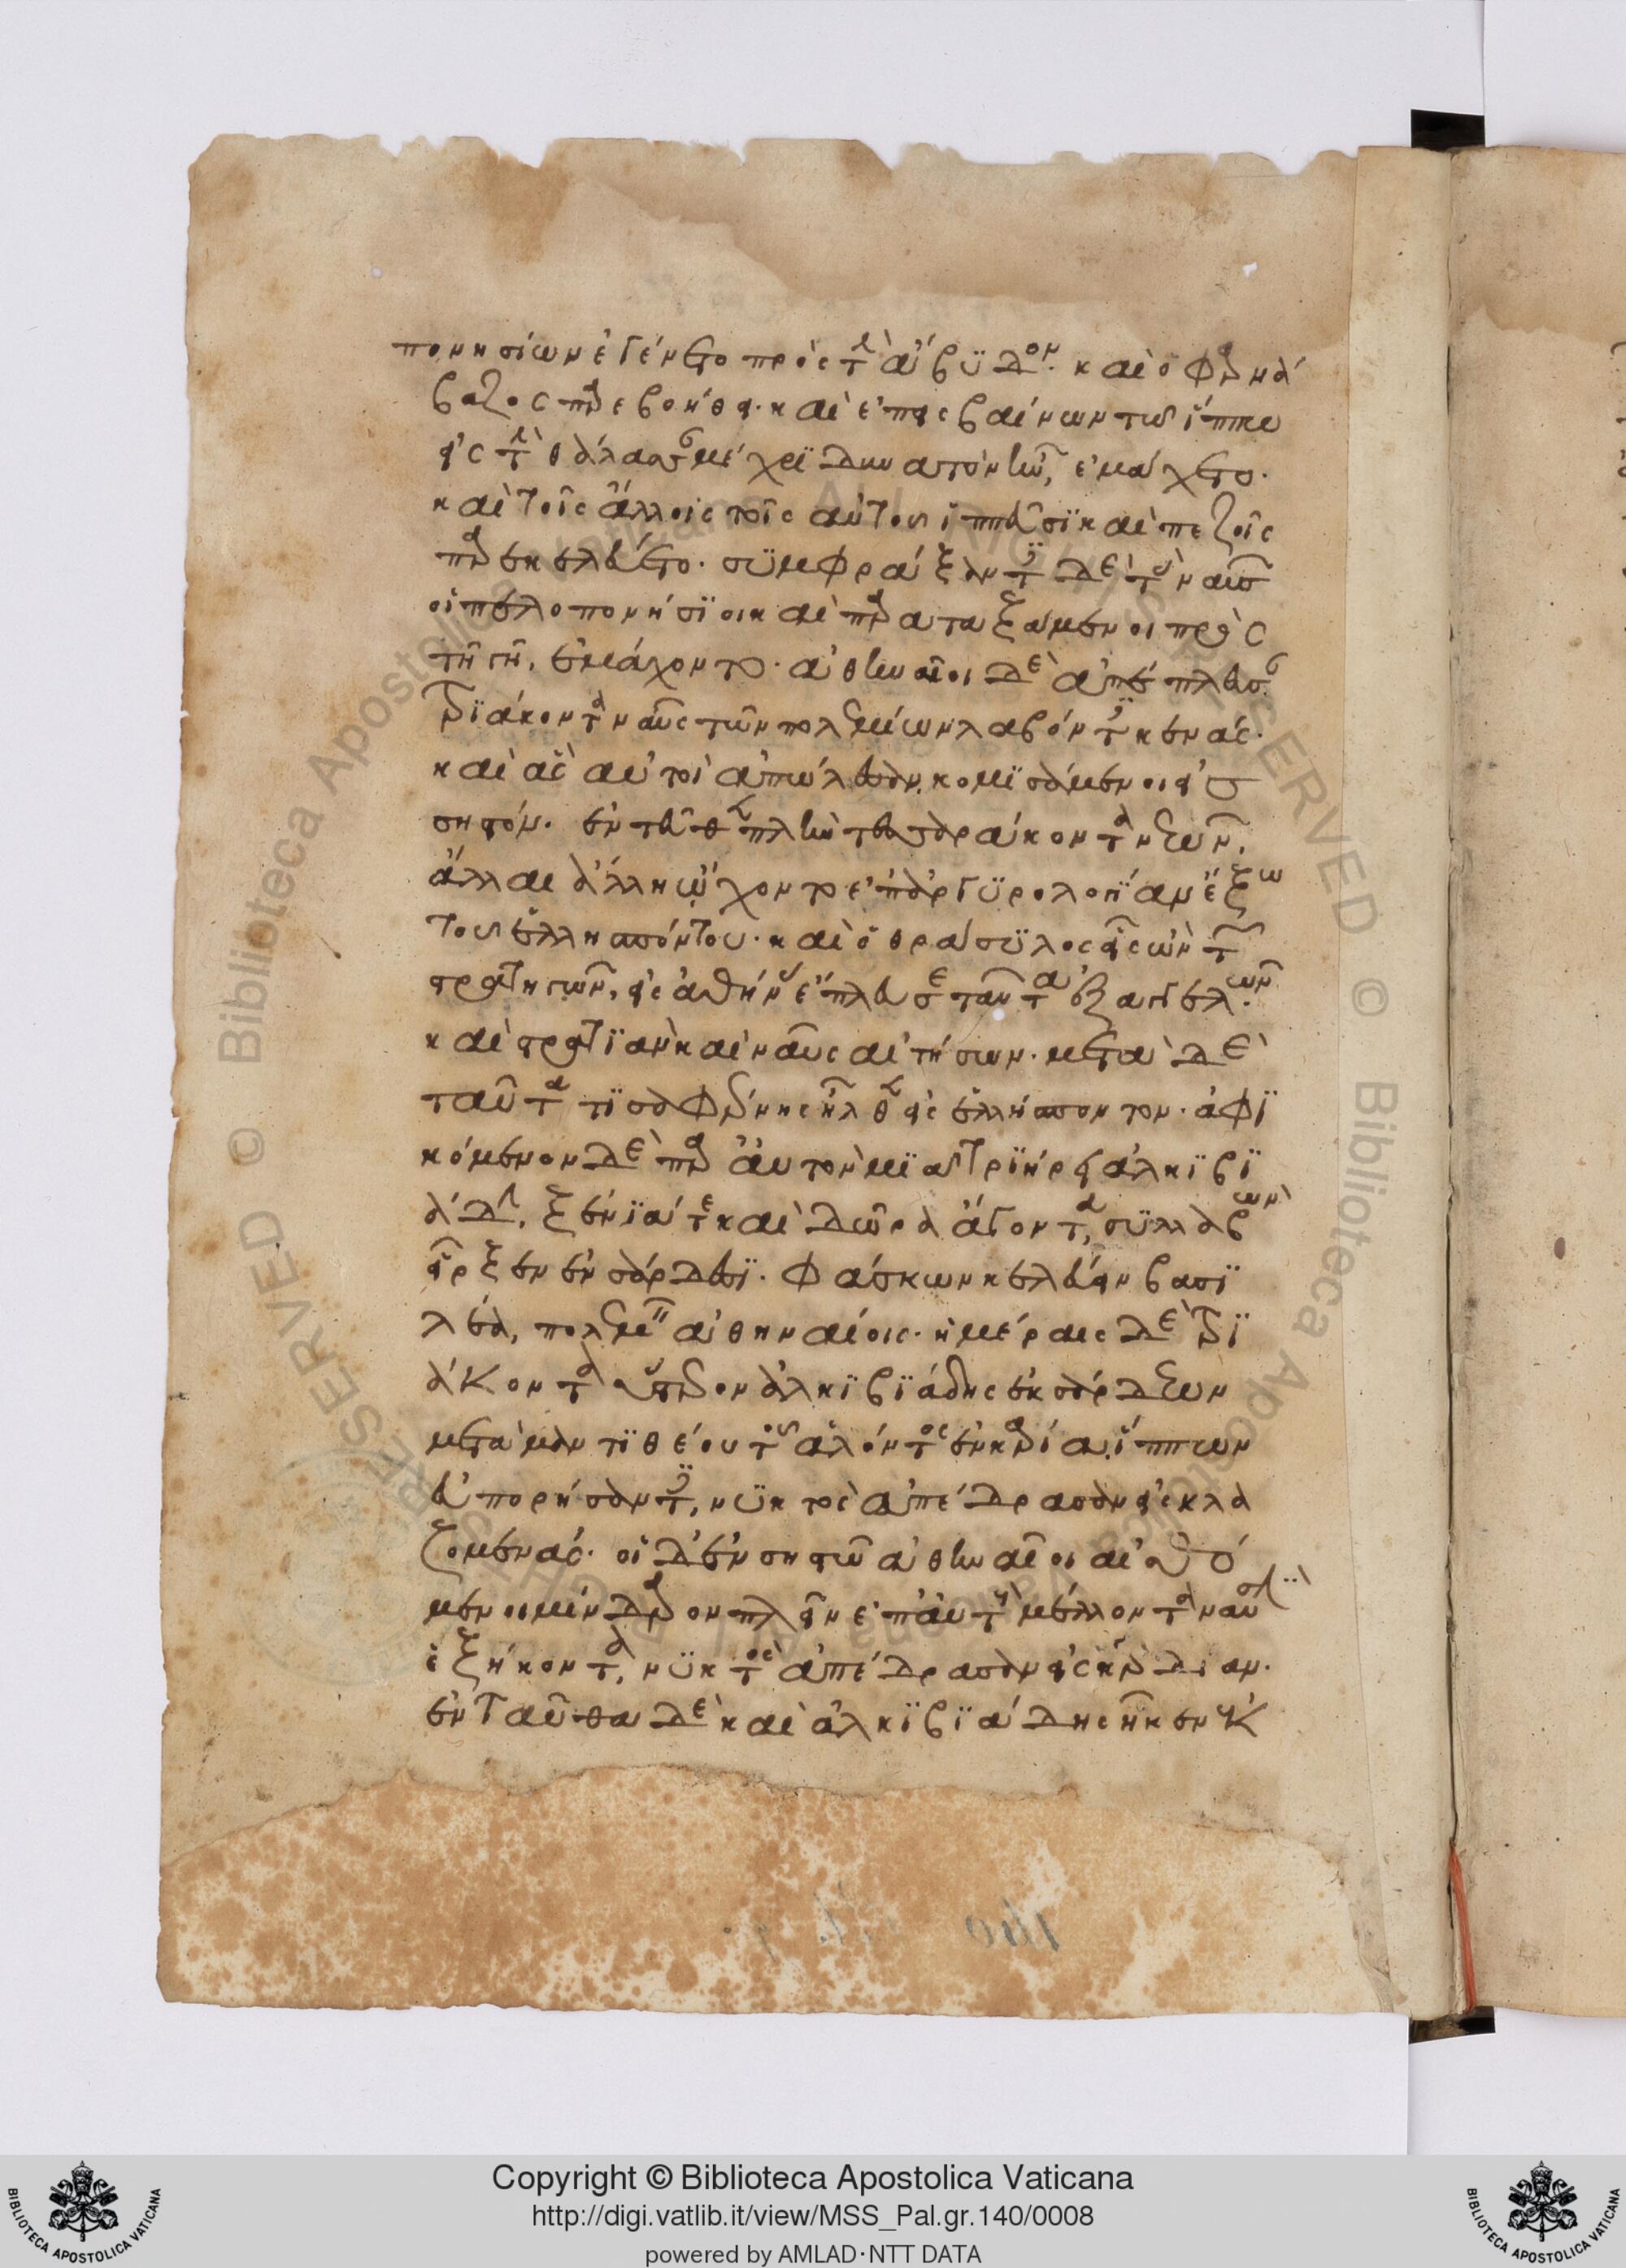 πονησίων ἐγένετο πρὸς τὴν ἄβυδον· καὶ ὁ φαρνά
βαζος παρεβοήθει· καὶ ἐπεσβαίνων τῶ ἵππω
εἰς τὴν θάλασσαν μέχρι δυνατὸν ἦν, ἐμάχετο·
καὶ τοῖς ἄλλοις τοῖς αὐτοῦ ἱππεῦσι καὶ πεζοῖς
παρεκελεύετο· συμφράξαντες δὲ τὰς ναῦς
οἱ πελοποννήσιοι καὶ παραταξάμενοι πρὸς
τῆ γῆ, ἐμάχοντο· ἀθηναῖοι δὲ ἀπέπλευσαν
τριάκοντα ναῦς τῶν πολεμίων λαβόντες κενάς·
καὶ ἃς αὐτοὶ ἀπώλεσαν, κομισάμενοι εἰς
σηστόν· ἐντεῦθεν πλὴν τεσσαράκοντα νεῶν,
ἄλλαι ἄλλη ὤχοντο ἐπ' ἀργυρολογίαν ἔξω
τοῦ ἑλλησπόντου· καὶ ὁ θράσυλος εἷς ὢν τῶν
στρατηγῶν, εἰς ἀθήνας ἔπλευσε ταῦτα ἐξαγγελῶν·
καὶ στρατιὰν καὶ ναῦς αἰτήσων· μετὰ δὲ
ταῦτα τισαφέρνης ἦλθεν εἰς ἑλλήσποντον· ἀφι
κόμενον δὲ παρ' αὐτὸν μιᾶ τριήρει ἀλκιβι
άδην, ξένιά τε καὶ δῶρα ἄγοντα, συλλαβὼν
εἷρξεν ἐν σάρδεσι· φάσκων κελεύειν βασι
λέα, πολεμεῖν ἀθηναίοις· ἡμέραις δὲ τρι
άκοντα ὕστερον ἀλκιβιάδης ἐκ σάρδεων
μετὰ μαντιθέου τοῦ ἁλόντος ἐν καρία, ἵππων
εὐπορήσαντες, νυκτὸς ἀπέδρασαν εἰς κλα
ζομενάς· οἱ δ' ἐν σηστῶ ἀθηναῖοι αἰσθό
μενοι μίνδαρον πλεῖν ἐπ' αὐτοὺς μέλλοντα ναυσὶν
ἑξήκοντα, νυκτὸς ἀπέδρασαν εἰς καρδίαν·
ἐνταῦθα δὲ καὶ ἀλκιβιάδης ἧκεν ἐκ
Copyright © Biblioteca Apostolica Vaticana
http://digi.vatlib.it/view/MSS_Pal.gr.140/0008
powered by AMLAD·NTT DATA